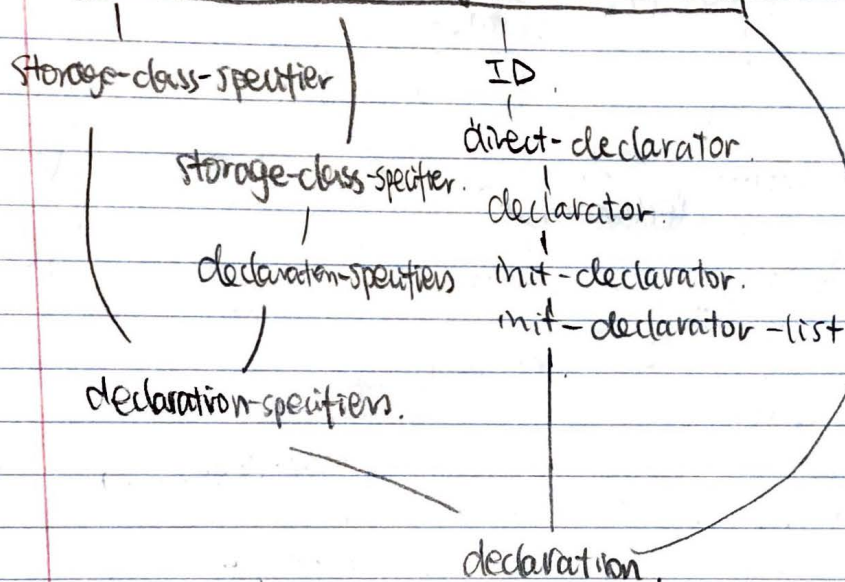 storage-class-specifier
ID.
direct-declarator.
storage-class-specifier.
declarator.
declaration-specifiers
init-declarator.
init-declarator-list
declaration-specifiers.
declaration.